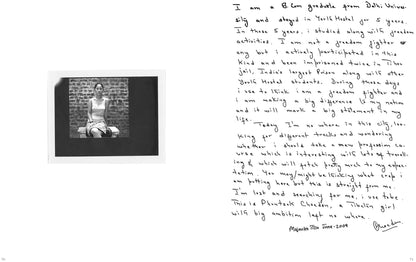 I am a B Com graduate from Delhi Univer-
sity and stayed in York Hostel for 5 years.
In those 5 years, i studied along with freedom
activities. I am not a freedom fighter or
any but i actively participated in this
kind and been imprisoned twice in Tihar
Jail, India's largest Prison along with other
York Hostel students. During those days
i use to think i am a freedom fighter and
i am making a big difference to my nation
and it will mark a big statement in my
life.
Today I'm no where in this city, loo-
king for different tracks and wondering
whether i should take a new profession co-
urse which is interesting with lots of travel-
ing & which will fetch pretty much to my expec-
tation. You may/might be thinking what crap i
am putting here but this is straight from me.
I'm lost and searching for me, i use to be.
This is Phuntsok Choedon, a Tibetan girl
with big ambition left no where.
Majnuka Tilla June-2009